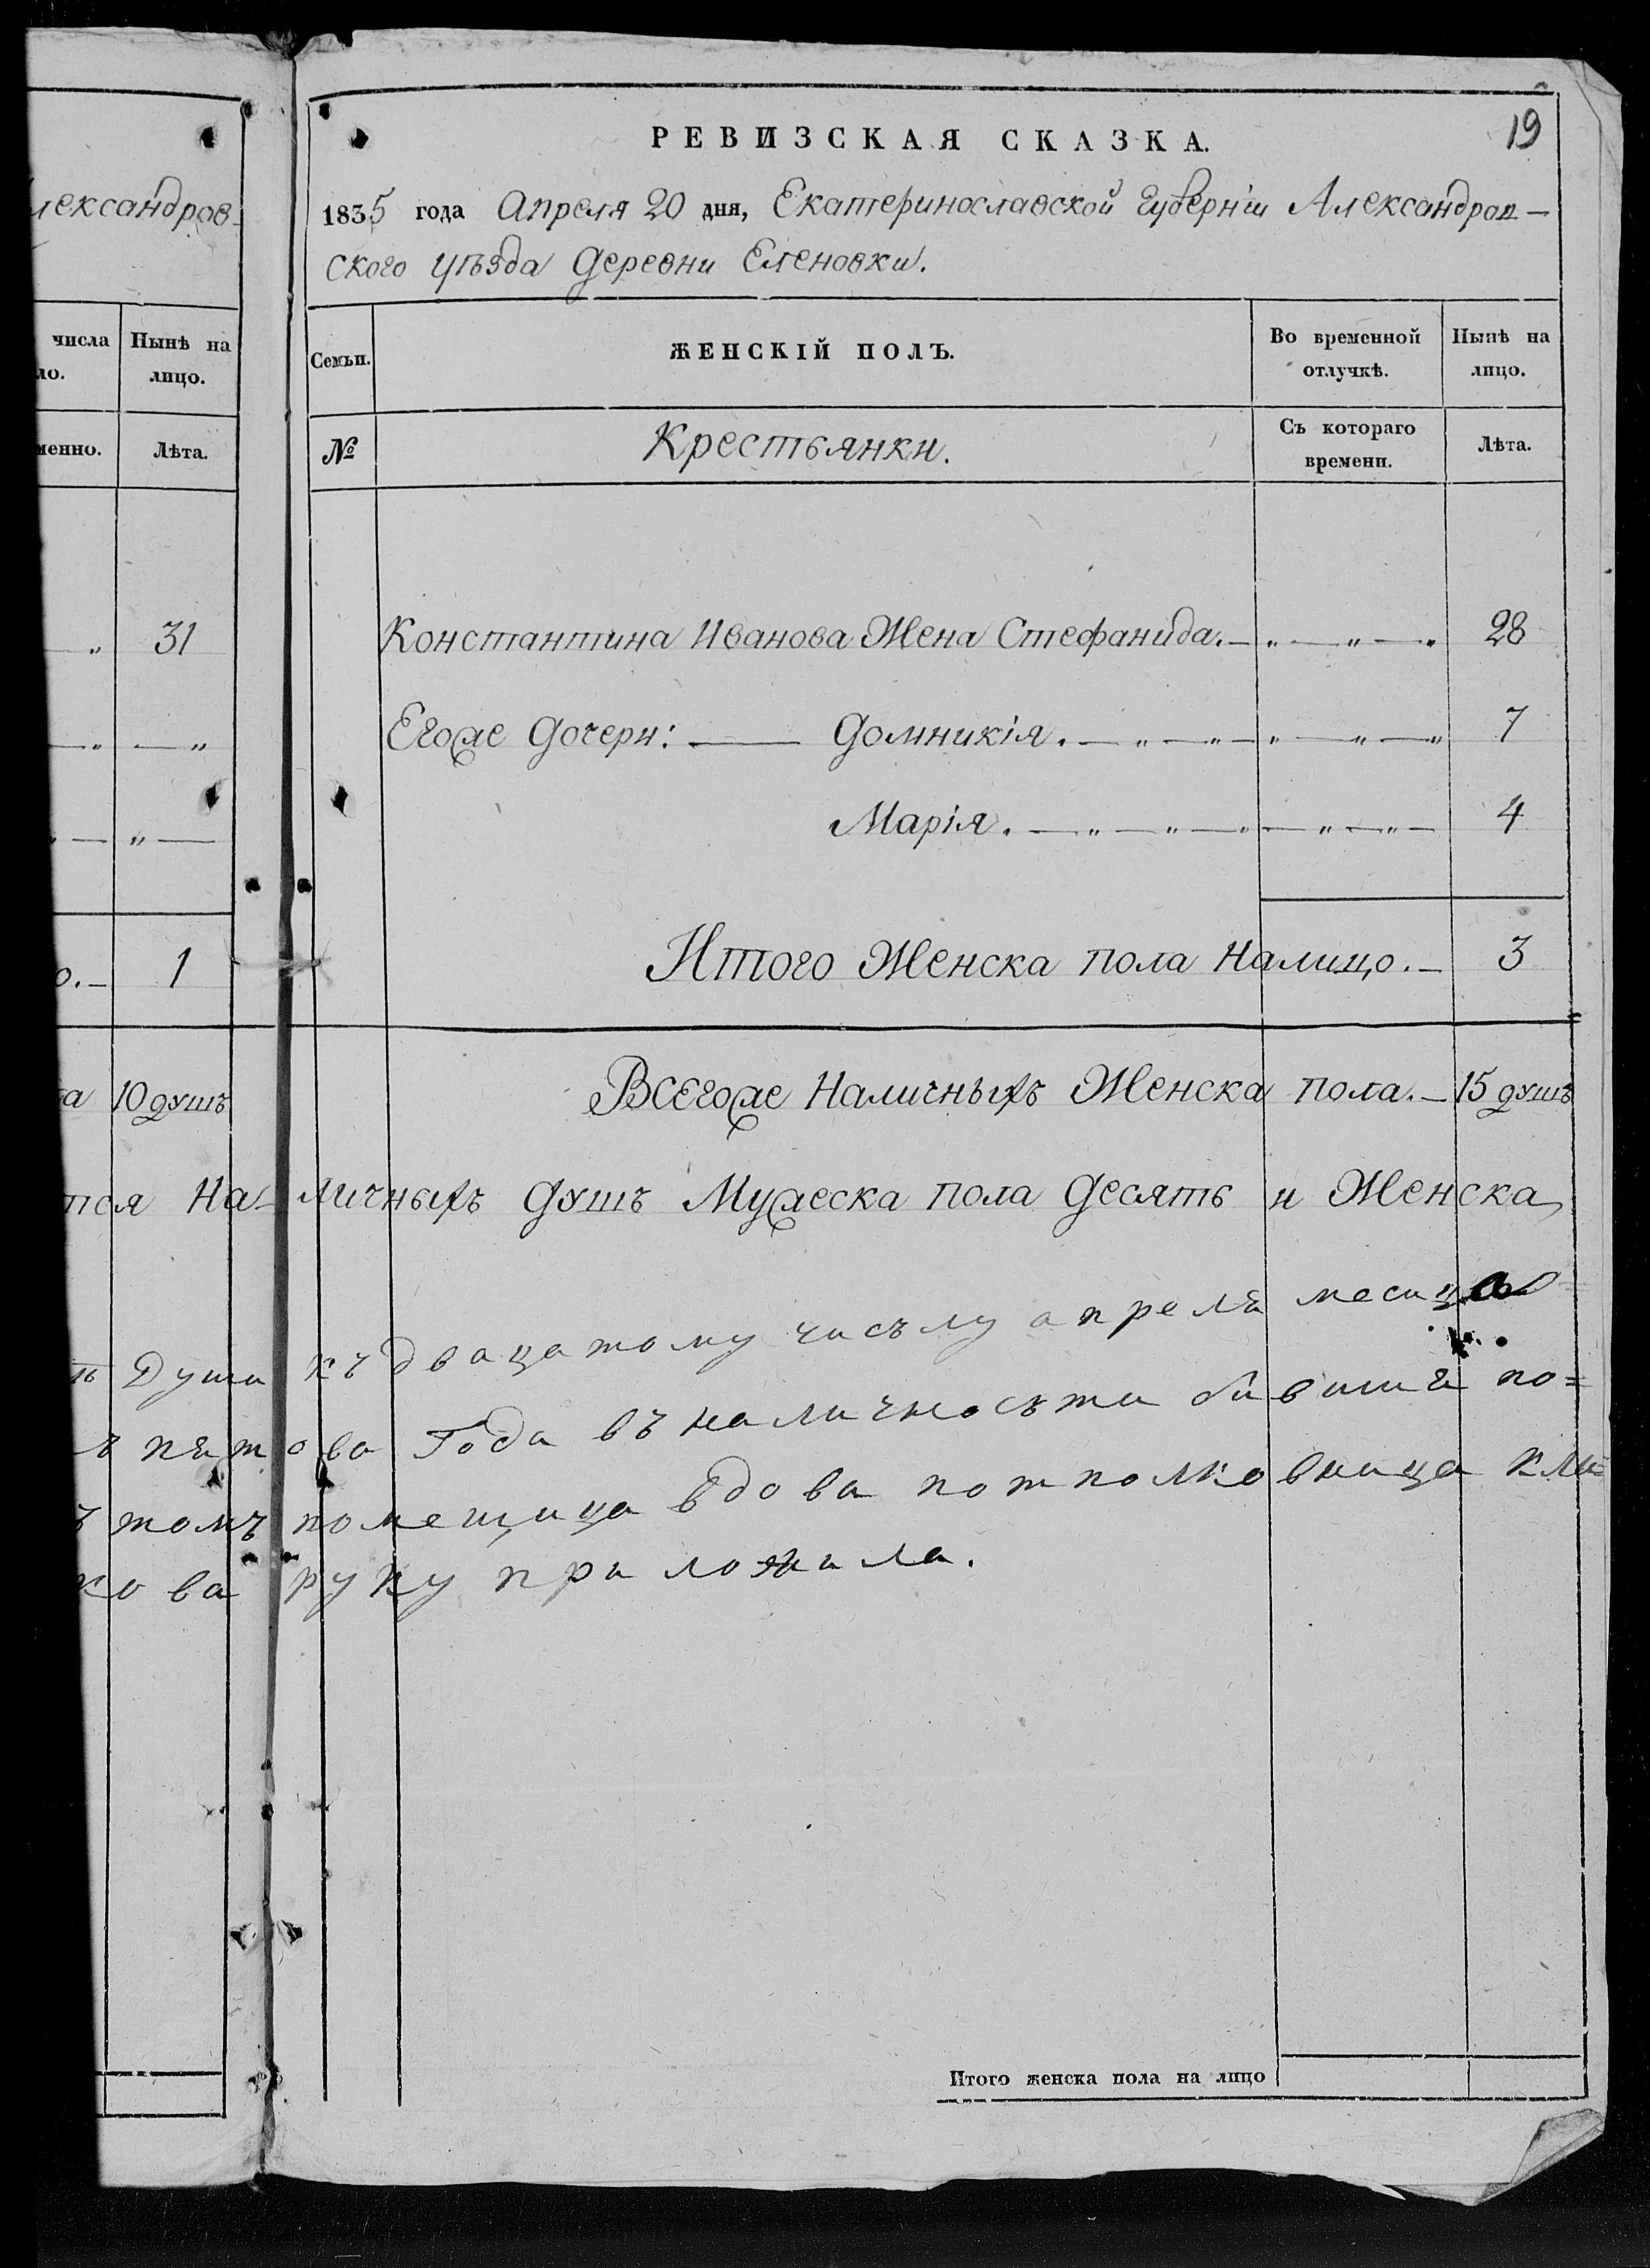 19
РЕВИЗСКАЯ СКАЗКА.
лександров-
1835 года Апреля 20 дня, Екатеринославской Губерніи Александров-
ского уѣзда деревни Еленовки.
числа Нынѣ на лицо.
ло.
менно. Лѣта.
Семьи. ЖЕНСКІЙ ПОЛЪ. Во временной отлучкѣ. Нынѣ на лицо.
№ Крестьянки. Съ котораго времени. Лѣта.
31 Константина Иванова Жена Стефанида. 28
Егоже Дочери: Домникія. 7
Марія. 4
о. 1 Итого Женска пола Налицо. 3
та 10 душъ Всегоже Наличныхъ Женска пола. 15 душъ
тся На-личныхъ душъ Мужеска пола десять и Женска
ть Души къ двацатому чисълу апреля месица
ъ пятова Года въ наличносьти бившия по=
ъ томъ помещица вдова потполковница Кли=
кова руку приложила.
Итого женска пола на лицо